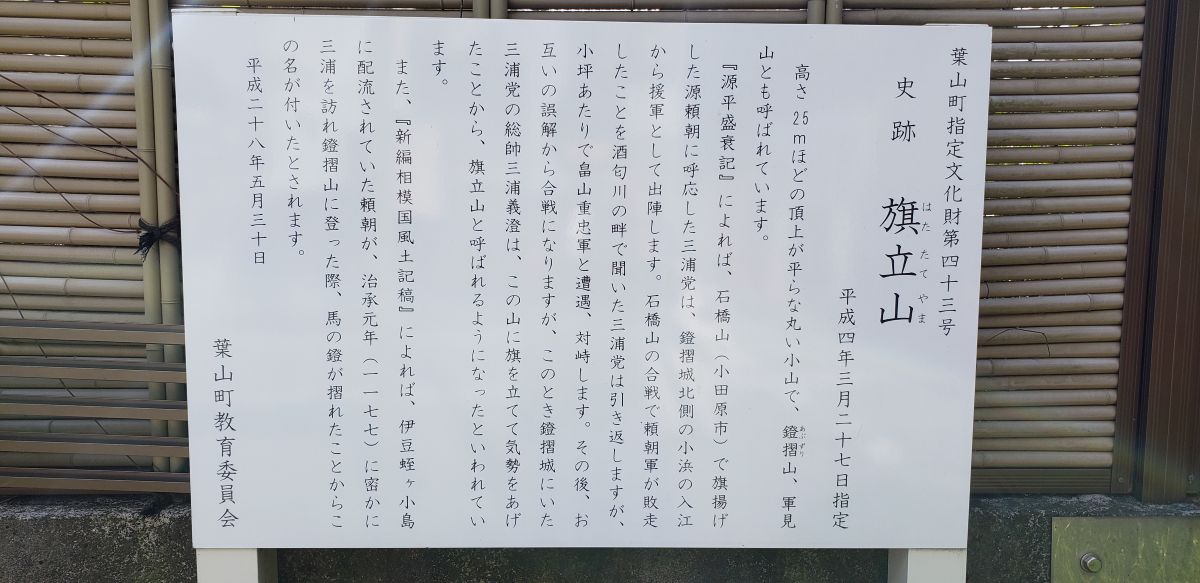 葉山町指定文化財第四十三号
史跡 旗立山
はたたてやま
平成四年三月二十七日指定
高さ 25mほどの頂上が平らな丸い小山で、鐙摺山、軍見
あぶずり
山とも呼ばれています。
『源平盛衰記』によれば、石橋山(小田原市)で旗揚げ
した源頼朝に呼応した三浦党は、鐙摺城北側の小浜の入江
から援軍として出陣します。石橋山の合戦で頼朝軍が敗走
したことを酒匂川の畔で聞いた三浦党は引き返しますが、
小坪あたりで畠山重忠軍と遭遇、対峙します。その後、お
互いの誤解から合戦になりますが、このとき鐙摺城にいた
三浦党の総帥三浦義澄は、この山に旗を立てて気勢をあげ
たことから、旗立山と呼ばれるようになったといわれてい
ます。
また、『新編相模国風土記稿』によれば、伊豆蛭ヶ小島
に配流されていた頼朝が、治承元年(一一七七)に密かに
三浦を訪れ鐙摺山に登った際、馬の鐙が摺れたことからこ
の名が付いたとされます。
平成二十八年五月三十日
葉山町教育委員会